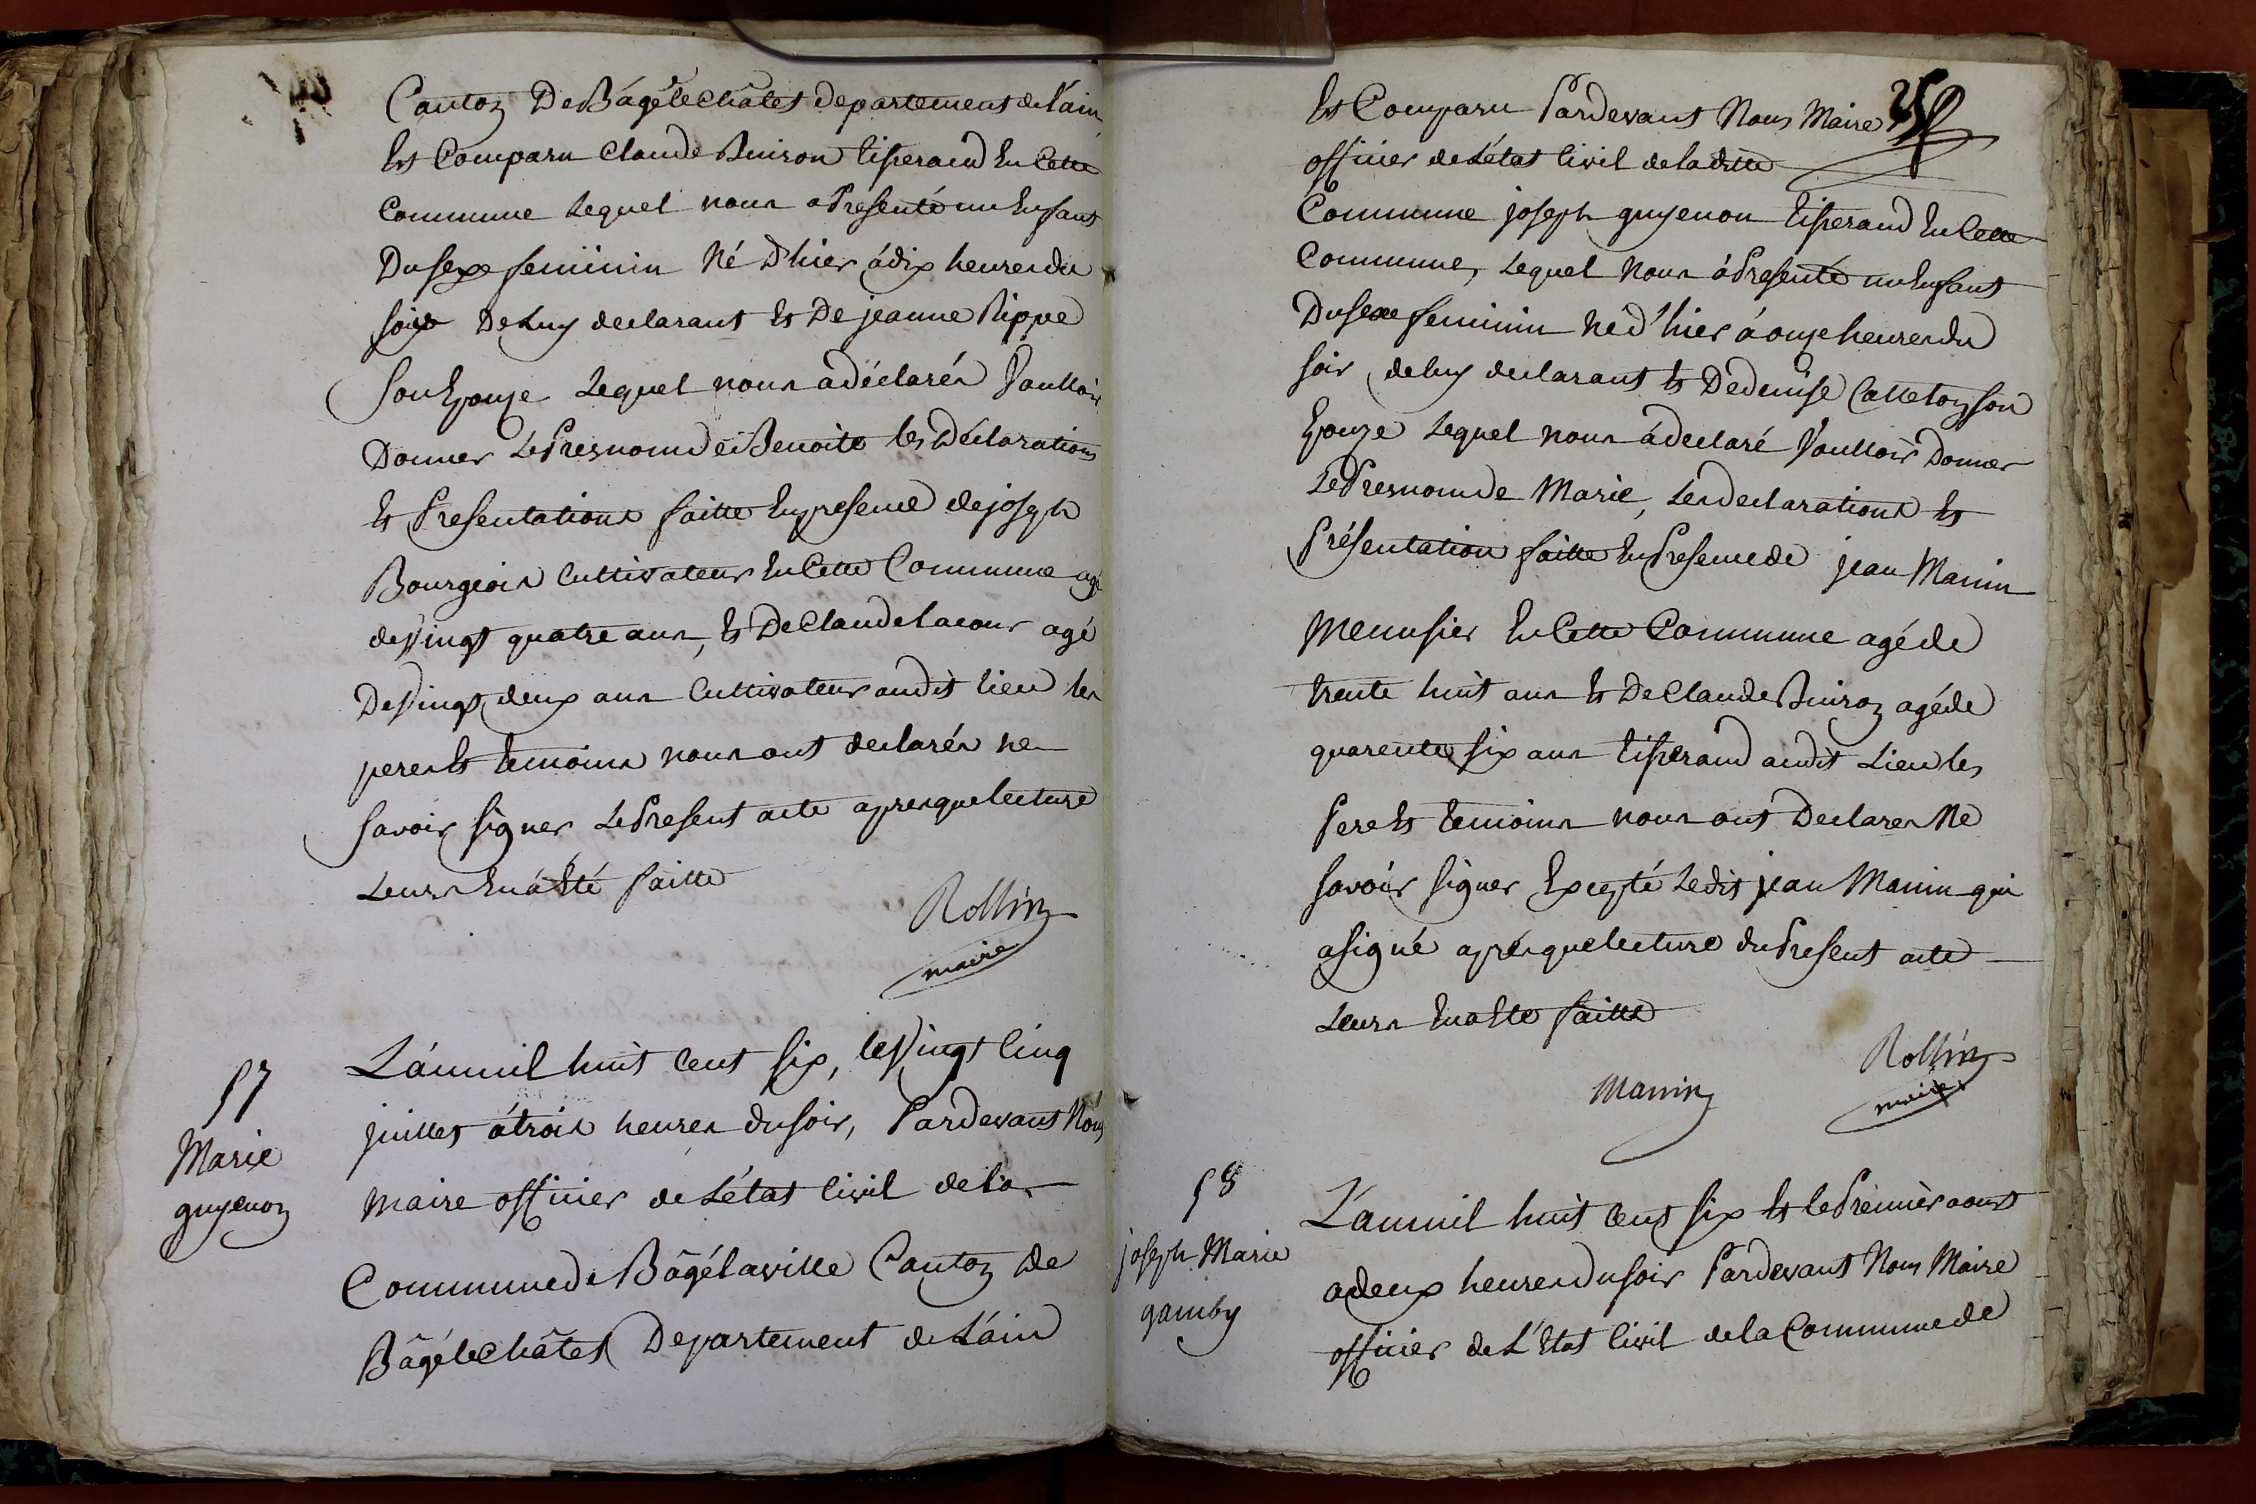 Canton De Bágélechâtel departement de l'ain
Est Comparu Claude Buiron tisserand En Cette
Commune Lequel nous a Présenté un Enfant
Du sexe feminin Né D'hier á dix heures du
soir De Luy declarant Et De jeanne Rippe
Son Epouze Lequel nous a déclarés Voulloir
Donner Le Presnom de Benoite les Déclarations
Et Presentations faitte En presence de joseph
Bourgeois Cultivateur En Cette Commune agé
de Vingt quatre ans, Et De Claude Lacour agé
De Vingt deux ans Cultivateur audit lieu les
peres Et temoins nous ont declarés ne
savoir signer Le Present acte apres que lecture
Leurs En á Eté faitte
Rollin
maire
57
Marie
guyenon
L'an mil huit Cent six, le Vingt Cinq
juillet á trois heures du soir, Pardevant Nous
Maire officier de L'état Civil de la
Commune de Bâgélaville Canton De
Bâgélechâtel Departement de L'áin
25
Est Comparu Pardevant Nous Maire
officier de L'état Civil de la ditte
Commune joseph guyenon tisserand En Cette
Commune, Lequel Nous á Presenté un Enfant
Du sexe feminin Né d'hier á onze heures du
soir, de luy declarant Et De denise Catteton son
Epouze Lequel nous á declaré Voulloir Donner
Le Presnom de Marie, Les declarations Et
Présentation faitte En Presence de jean Manin
Menusier En Cette Commune agé de
trente huit ans Et De Claude Buiron agé de
quarente six ans tisserand audit Lieu les
Pere Et temoins nous ont Declares Ne
savoir signer Excepté Ledit jean Manin qui
a signé aprés que lecture du Present acte
Leurs En a Ete faitte
Manin
Rollin
maire
58
joseph Marie
gamby
L'an mil huit Cent six Et le Premier aoust
a deux heures du soir Pardevant Nous Maire
officier de L'Etat Civil de la Commune de